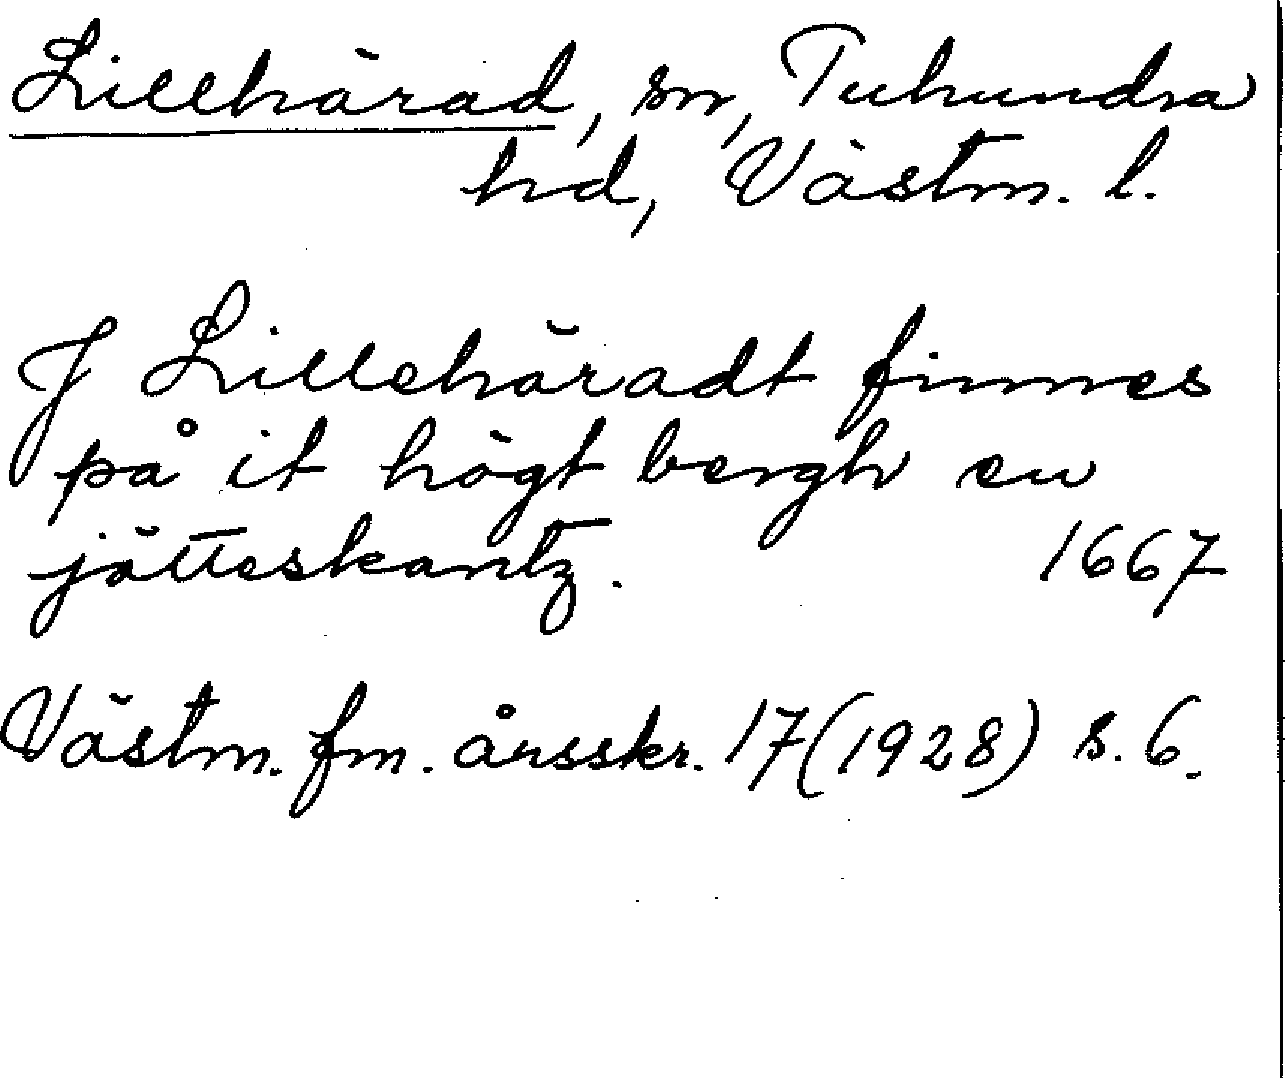 Lillhärad, sn, Tuhundra
hd, Västm. l.
J Lillehäradt finnes
på it högt bergh en
jätteskantz. 1667
Västm. fm. årsskr. 17(1928) s. 6.